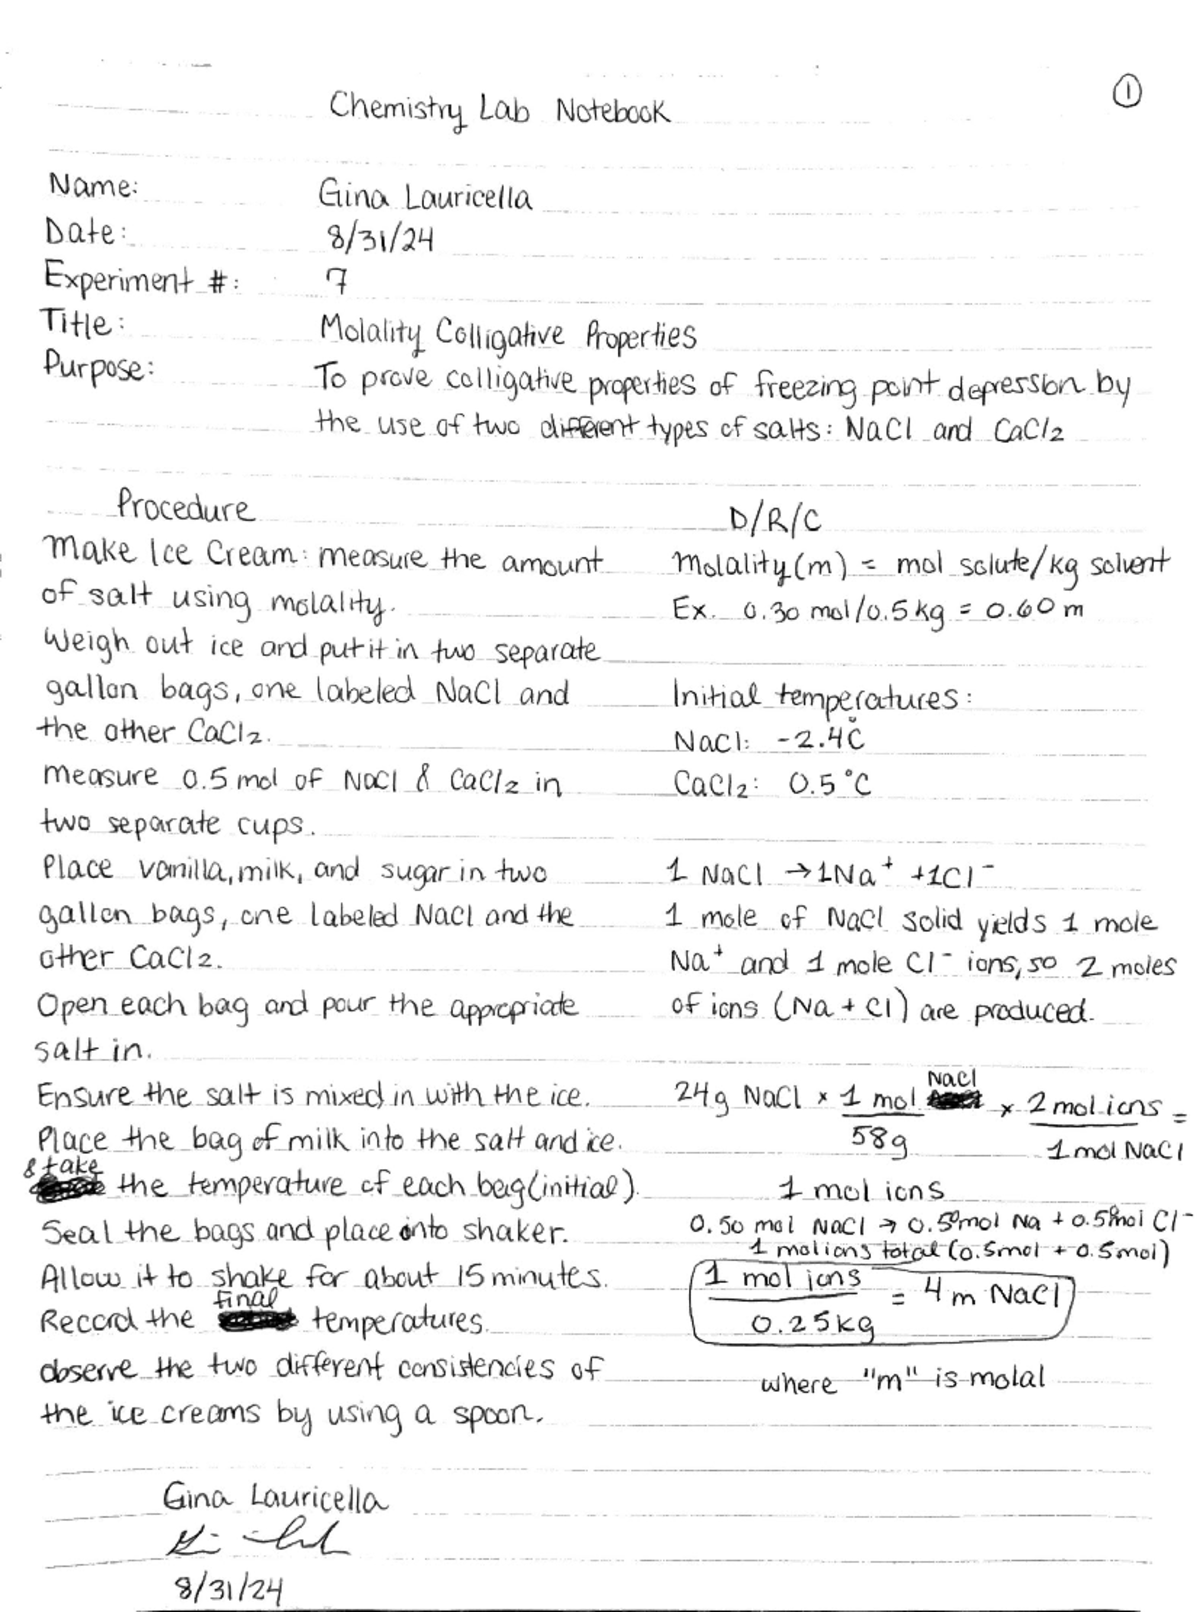 ①
Chemistry Lab Notebook
Name: Gina Lauricella
Date: 8/31/24
Experiment #: 7
Title: Molality Colligative Properties
Purpose: To prove colligative properties of freezing point depression by
the use of two different types of salts: NaCl and CaCl2
Procedure
Make Ice Cream: measure the amount
of salt using molality.
Weigh out ice and put it in two separate
gallon bags, one labeled NaCl and
the other CaCl2.
measure 0.5 mol of NaCl & CaCl2 in
two separate cups.
Place vanilla, milk, and sugar in two
gallon bags, one labeled NaCl and the
other CaCl2.
Open each bag and pour the appropriate
salt in.
Ensure the salt is mixed in with the ice.
Place the bag of milk into the salt and ice.
& take the temperature of each bag (initial).
Seal the bags and place onto shaker.
Allow it to shake for about 15 minutes.
Record the final temperatures.
observe the two different consistencies of
the ice creams by using a spoon.
D/R/C
Molality (m) = mol solute/kg solvent
Ex. 0.30 mol/0.5 kg = 0.60 m
Initial temperatures:
NaCl: -2.4°C
CaCl2: 0.5°C
1 NaCl → 1Na⁺ + 1Cl⁻
1 mole of NaCl solid yields 1 mole
Na⁺ and 1 mole Cl⁻ ions, so 2 moles
of ions (Na + Cl) are produced.
24g NaCl × 1 mol NaCl × 2 mol ions =
58g 1 mol NaCl
1 mol ions
0.50 mol NaCl → 0.50 mol Na + 0.50 mol Cl⁻
1 mol ions total (0.5mol + 0.5mol)
1 mol ions = 4 m NaCl
0.25kg
where "m" is molal
Gina Lauricella
8/31/24